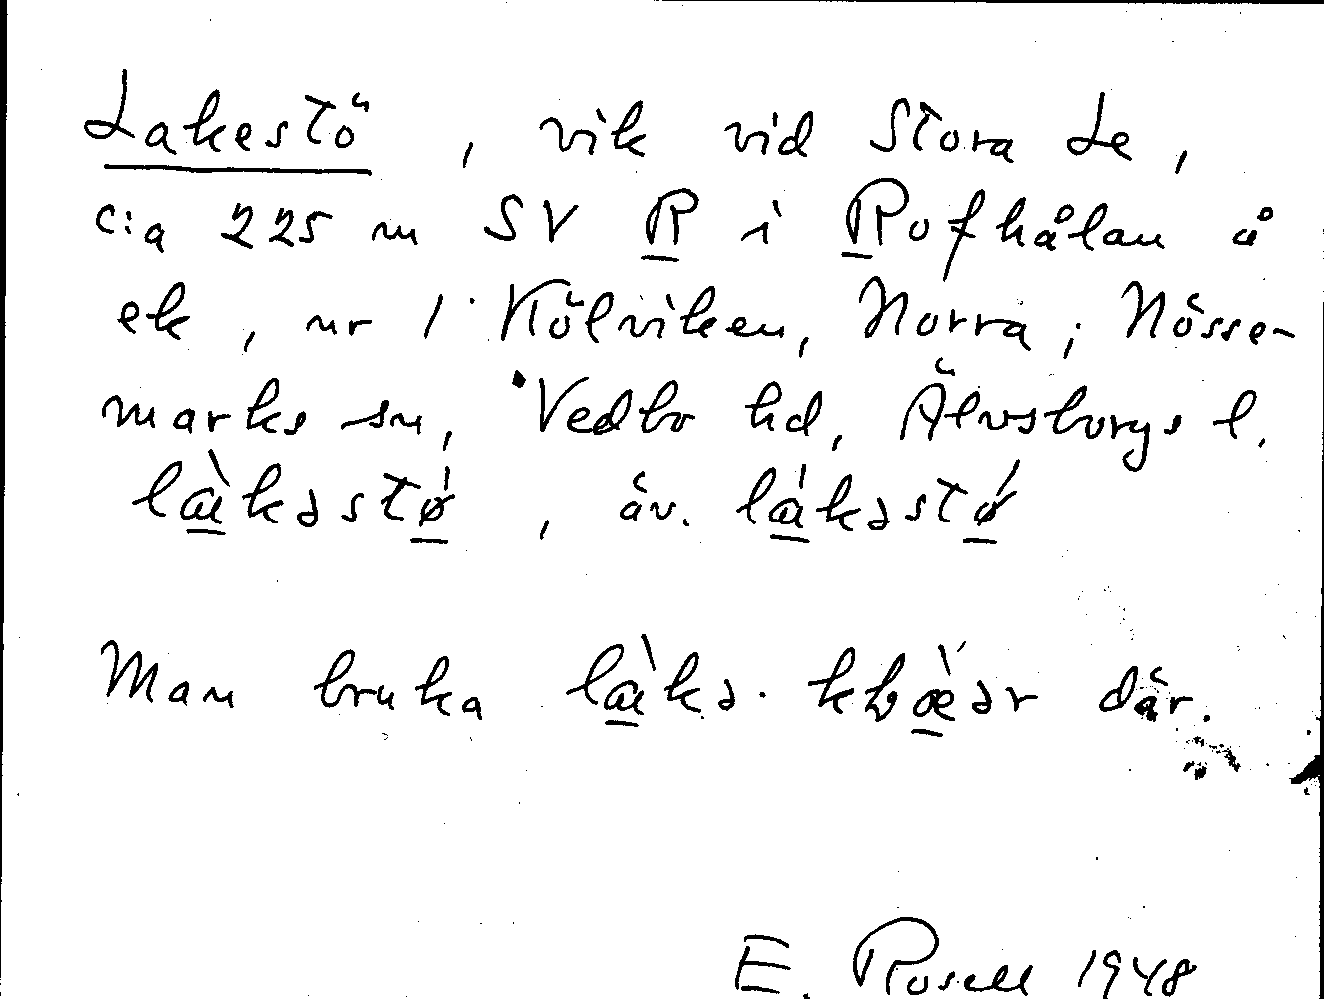 Lakestö, vik vid Stora Le,
c:a 225 m SV R i Rofhålan å
ek, nr 1 Kölviken, Norra; Nösse-
marks sn, Vedbo hd, Älvsborgs l.
, äv.
Man bruka där.
E. Rosell 1948